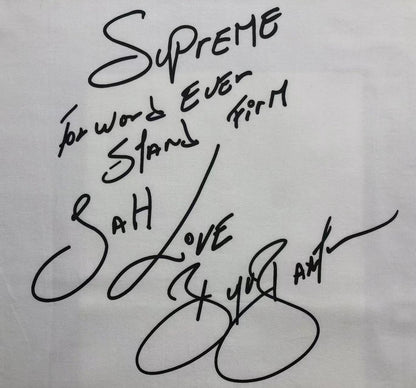 SuPreME
Forword Ever
Stand Firm
JaH Love
Buju Banton